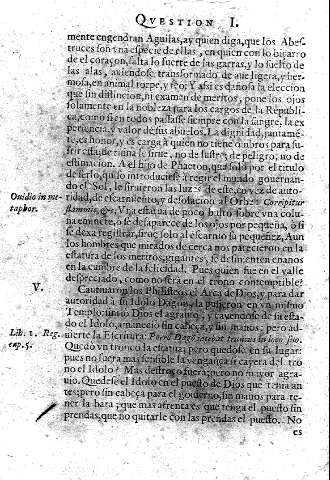 QVESTION I.
mente engendran Aguilas, ay quien diga, que los Abes-
truces son vna especie de ellas, en quien con lo bizarro
de el coraçon, falta lo fuerte de las garras, y lo suelto de
las alas, aviendose transformado de aue ligera, y her-
mosa, en animal torpe, y feo. Y assi es daño la eleccion
que sin distincion, ni examen de meritos, pone los ojos
solamente en la nobleza para los cargos de la Republi-
ca, como si en todos passasse siempre con la sangre, la ex
periencia, y valor de sus abuelos. La dignidad, juntamē-
te, es honor, y es carga à quien no tiene ombros para su-
frir esta, de tiene se sirue, no de lustre, de peligro, no de
estimacion. A el hijo de Phaeton, que solo por el titulo
de serlo, quiso introducirse à regir el mundo gouernan-
do el Sol, le siruieron las luzes de este, en vez de auto-
Ouidio in me
taphor.
ridad, de escarmiento, y desolacion al Orbe: Corripitur
flammis, &c. Vna estatua de poco bulto sobre vna colu-
na eminente, ò se desaparece de los ojos por pequeña, ò si
se dexa registrar, siruele solo al escarnio su pequeñez. Aun
los hombres que mirados de cerca nos parecieron en la
estatura de los meritos, gigantes, se desmienten enanos
en la cumbre de la felicidad. Pues quien fue en el valle
despreciado, como no serà en el trono contemptible?
V.
Cautiuaron los Philisteos el Arca de Dios, y para dar
autoridad à su Idolo Dagon, la pusieron en vn mismo
Templo: sintiò Dios el agrauio, y cayendose de su esta-
do el Idolo, amaneciò sin cabeça, y sin manos: pero ad-
Lib. 1. Reg.
cap. 5.
uierte la Escritura: Porrò Dagō iacebat truncus in loco suo.
Quedò vn tronco la estatua; pero quedose en su lugar:
pues no fuera mas sensible la vengança si cayera del tro-
no el Idolo? Mas destroço fuera; pero no mayor agra-
uio. Quedese el Idolo en el puesto de Dios que tenia an
tes: pero sin cabeça para el gouierno, sin manos para te-
ner la bara; que mas afrenta es que tenga el puesto sin
prendas, que no quitarle con las prendas el puesto. No
es